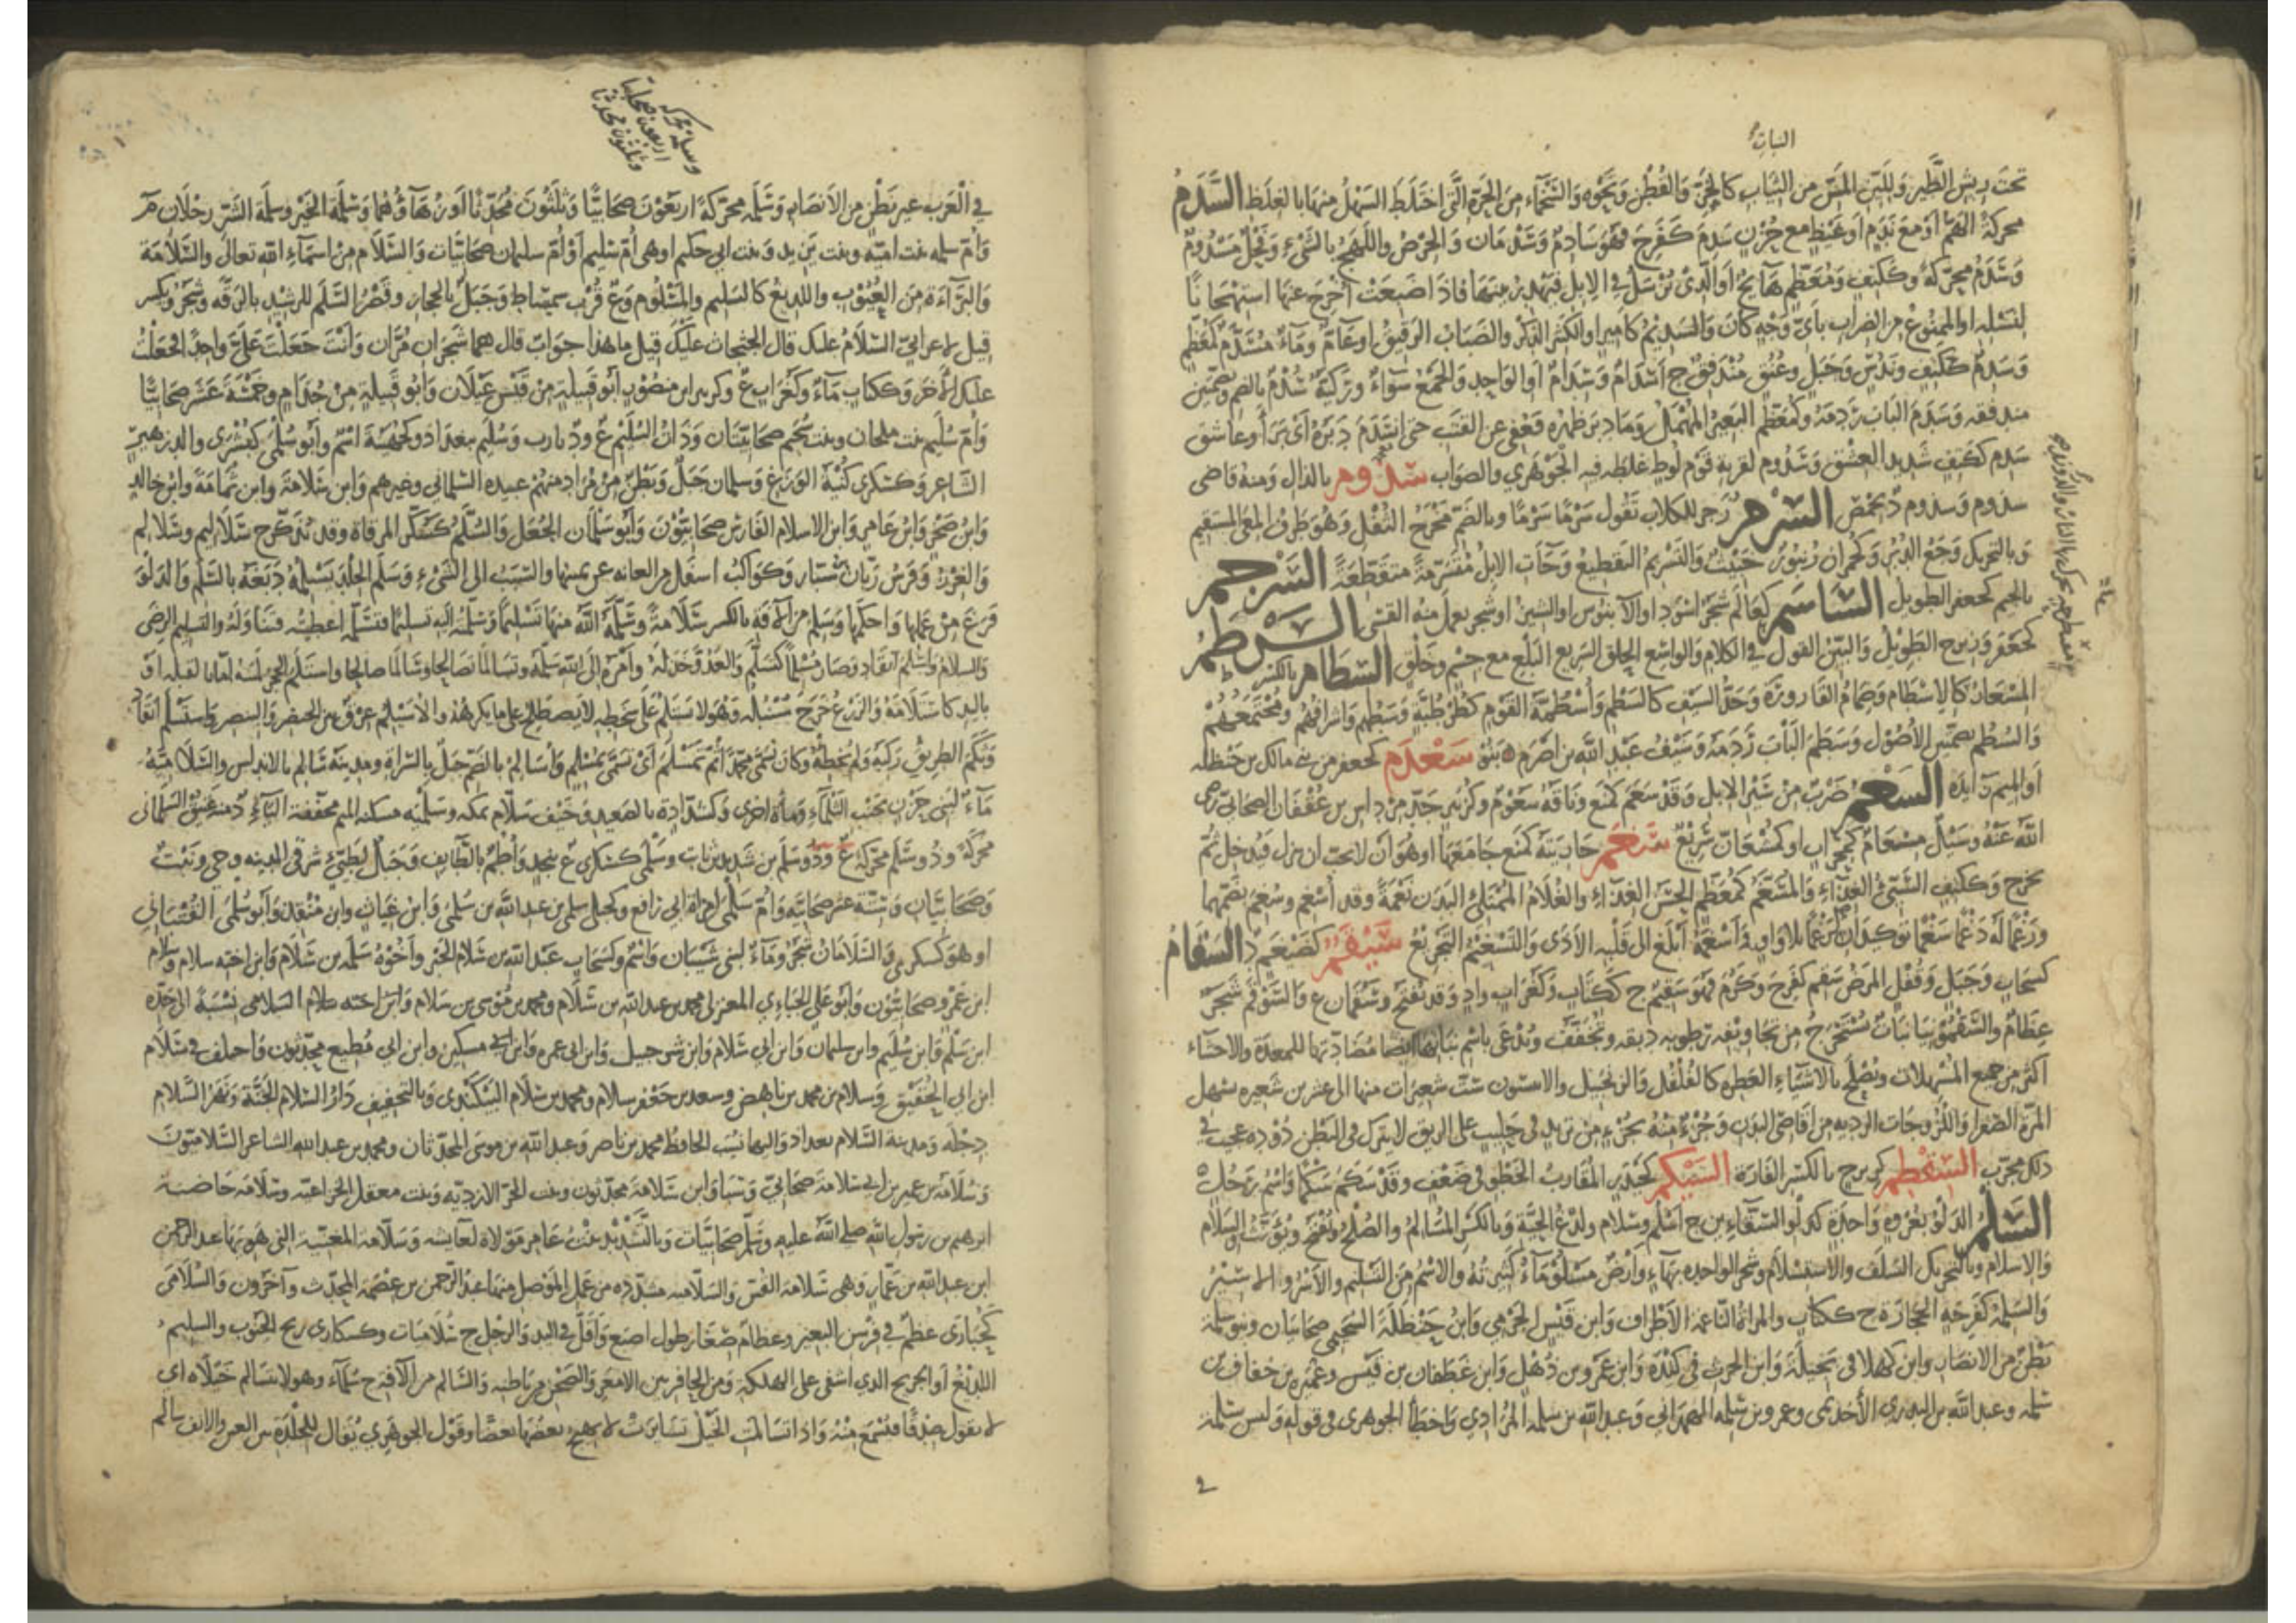 النبات
تحت ريش الطير واللين المس من الثياب كالخز والقطن ونحوه والسخماء من الحرة التي اختلط السهل منها بالغلظ السدم
محركة الهم او مع ندم او غيظ مع حزن سدم كفرح فهو سادم وسدمان والحرص واللهج بالشيء وفحل مسدوم
وسدم محركة وككتف ومعظم هايج او الذي يرسل في الابل فيهدر بينها فاذا ضبعت اخرج عنها استهجانا
لنسله او الممنوع من الضراب باي وجه كان والسديم كامير الكثير الذكر والضباب الرقيق او عام وماء مسدم كمعظم
وسدم ككتف وندس وجبل وعنق مندفق ج اسدام وسدام او الواحد والجمع سواء وركية سدم بالضم وبضمتين
مندفقه وسدم الباب ردمه وكمعظم البعير المهمل وما دبر ظهره فعفي عن القتب حتى انسدم دبره اي برا وعاشق
سدم ككتف شديد العشق وسدوم لقرية قوم لوط غلط فيه الجوهري والصواب سذوم بالذال ومنه قاضي
سذوم وسذوم د بحمص السرم زجر للكلاب تقول سرما سرما وبالضم مخرج الثفل وهو طرف المعي المستقيم
وبالتحريك وجع الدبر وكحمران زنبور خبيث والتسريم التقطيع وجآت الابل متسرمة متقطعة السرجم
بالجيم كجعفر الطويل الساسم كعالم شجر اسود او الآبنوس او الشيز او شجر يعمل منه القسي السرطم
كجعفر وزبرج الطويل والبين القول في الكلام والواسع الحلق السريع البلع مع جسم وخلق السطام بالكسر
المسعار كالاسطام وصمام القارورة وحد السيف كالسطم واسطمة القوم كطرطبة وسطهم واشرافهم ومجتمعهم
والسطم بضمتين الاصول وسطم الباب ردمه وسيف عبد الله بن اصرم بنو سعدم كجعفر من بني مالك بن حنظله
او الميم زايدة السعم ضرب من سير الابل وقد سعم كمنع وناقة سعوم وكزبير جد مرداس بن عقفان الصحابي رضي
الله عنه وسيل مسعام كمحراب او كمشعان سريع سغم جاريته كمنع جامعها او هو ان لا يحب ان ينزل فيدخل ثم
يخرج وككتف السيئ الغذاء والمسغم كمعظم الحسن الغذاء والغلام الممتلئ البدن نعمة وقد اسغم وسغم بضمهما
ورغما له دغما سغما توكيدان لرغما بلا واو واسغمه ابلغ الى قلبه الاذى والتسغيم التجريع سيقم كضيغم د السقام
كسحاب وجبل وقفل المرض سقم كفرح وكرم فهو سقيم ج ككتاب وكغراب واد وقد يفتح وسقمان ع والسوقم شجر
عظام والسقمونيا نبات يستخرج من تجاويفه رطوبه دبقه وتجفف وتدعى باسم نباتها ايضا مضادتها للمعدة والاحشاء
اكثر من جميع المسهلات وتصلح بالاشياء العطرة كالفلفل والزنجبيل والانيسون ست شعيرات منها الى عشرين شعيره يسهل
المرة الصفرا واللزوجات الرديه من اقاصي البدن وجزء منه بجزء من تربد في حليب على الريق لا يترك في البطن دوده عجيب في
ذلك مجرب السقطم كزبرج بالكسر الفارة السيكم كحيدر المقارب الخطو في ضعف وقد سكم سكما واسم رجل
السلم الدلو بعروة واحدة كدلو السقائين ج اسلم وسلام ولدغ الحية وبالكسر المسالم والصلح ويفتح ويؤنث والسلام
والاسلام وبالتحريك السلف والاستسلام وشجر الواحدة بهاء وارض مسلوماء كثيرته والاسم من التسليم والاسر والاسير
والسلمة كفرحة الحجارة ج ككتاب والمراة الناعمة الاطراف وابن قيس الجرمي وابن حنظلة السحيمي صحابيان وبنو سلمة
بطن من الانصار وابن كهلا في بجيلة وابن الحرث في كندة وابن عمرو بن ذهل وابن غطفان بن قيس وعميرة بن خفاف بن
سلمه وعبد الله بن سلمه البدري الأحدي وعمرو بن سلمه الهمداني وعبد الله بن سلمه المرادي واخطا الجوهري في قوله وليس سلمة
وسلمة محركة
اربعون صحابيا
وثلثون محدثا
في العرب غير بطن من الانصار وسلمة محركة اربعون صحابيا وثلثون محدثا او زهآؤهما وسلمة الخير وسلمة الشر رجلان م
وام سلمه بنت اميه وبنت يزيد وبنت ابي حكيم او هي ام سليم او ام سليمان صحابيات والسلام من اسماء الله تعالى والسلامة
والبراءة من العيوب واللديغ كالسليم والمسلوم وع قرب سميساط وجبل بالحجاز وقصر السلام للرشيد بالرقة وشجر ويكسر
قيل لاعرابي السلام عليك قال الجثجاث عليك قيل ما هذا جواب قال هما شجران مران وانت جعلت علي واحدا فجعلت
عليك الآخر وككتاب ماء وكغراب ع وكزبير ابن منصور ابو قبيلة من قيس عيلان وابو قبيلة من جذام وخمسة عشر صحابيا
وام سليم بنت ملحان وبنت سحيم صحابيتان وذات السليم ع ودرب سليم ببغداد وكجهينة اسم وابو سلمى كبشرى والد زهير
الشاعر وكسكرى كنية الوزغ وسلمان جبل وبطن من مراد منهم عبيده السلماني وغيرهم وابن سلامة وابن ثمامة وابن خالد
وابن صخر وابن عامر وابن الاسلام الفارسي صحابيون وابو سلمان الجعل والسلم كسكر المرقاة وقد تذكر ج سلاليم وسلالم
والغرز وفرس زبان بن سيار وكواكب اسفل من العانه عن يمينها والسبب الى الشيء وسلم الجلد يسلمه دبغه بالسلم والدلو
فرغ من عملها واحكمها وسلم من الآفة بالكسر سلامة وسلمه الله منها تسليما وسلمته اليه تسليما فتسلمه اعطيته فتناوله والتسليم الرضى
والسلام واسلم انقاد وصار مسلما كتسلم والعدو خذله وامره الى الله سلمه وتسالما تصالحا وسالما صالحا واستلم الحجر لمسه اما بالقبلة او
باليد كاستلامه والزرع خرج سنبله وهو لا يستلم على سخطه لا يصطلح على ما يكرهه والاسيلم عرق بين الخنصر والبنصر واستسلم انقاد
وثكم الطريق ركبه ولم يخطئه وكان يسمى محمدا ثم تمسلم اي تسمى بمسلم واسالم بالضم جبل بالسراة ومدينة سالم بالاندلس والسلامية
ماء لبني حزن بجنب الثلماء وماءة اخرى وكشدادة بالصعيد وخيف سلام بمكه وسلميه مسكنه الميم مخففة الياء د منه عتيق السلماني
محركة وذو سلم محركة ع ودو سلم بن شديد بن ثابت وسلمى كسكرى ع بنجد واطم بالطايف وجبل لطيئ شرقي المدينه وحي ونبت
وصحابيان وستة عشر صحابيه وام سلمى امراة ابي رافع وكحبلى سلمى بن عبد الله بن سلمى وابن غياث وابن منقذ وابو سلمى القتباني
او هو كسكرى والسلامان شجر وماء لبني شيبان واسم وكسحاب عبد الله بن سلام الحبر واخوه سلمه بن سلام وابن اخته سلام وسلام
ابن عمرو صحابيون وابو علي الجباءي المعتزلي محمد بن عبد الله بن سلام ومحمد بن موسى بن سلام السلامي نسبة الى جده
ابن سلم وابن سليم وابن سلمان وابن ابي سلام وابن شرحبيل وابن ابي عمره وابن مسكين وابن ابي مطيع محدثون واختلف في سلام
ابن ابي الحقيق وسلام بن محمد بن ناهض وسعد بن جعفر سلام ومحمد بن سلام البيكندي وبالتخفيف دار السلام الجنة ونهر السلام
دجلة ومدينة السلام بغداد واليها نسب الحافظ محمد بن ناصر وعبد الله بن موسى المحدثان ومحمد بن عبد الله الشاعر السلاميون
وسلامة بن عمير بن ابي سلامة صحابي وسيار بن سلامة محدثون وبنت الحر الازديه وبنت معقل الخزاعيه وسلامة حاضنة
ابرهيم بن رسول الله صلى الله عليه وسلم صحابيات وبالتشديد بنت عامر مولاة لعايشه وسلامة المغنية التي هويها عبد الرحمن
ابن عبد الله بن عمار وهي سلامة القس والسلاميه مشدده من عمل الموصل منها عبد الرحمن بن عصمة المحدث وآخرون والسلامى
كحبارى عظم في فرسن البعير وعظام صغار طول اصبع واقل في اليد والرجل ج سلاميات وكسكارى ريح الجنوب والسليم
اللديغ او الجريح الذي اشفى على الهلكة ومن الحافر بين الامعر والصحن من باطنه والسالم من الآفة ج سلماء وهو لا تسالم خيلاه اي
لا يقول صدقا فيسمع منه واذا تسالمت الخيل تسايرت لا يهيج بعضها بعضا وقول الجوهري يقال للجلدة بين العين والانف سالم